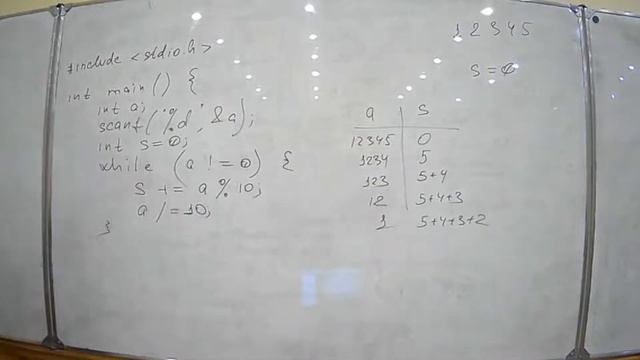 #include <stdio.h>
int main() {
int a;
scanf("%d", &a);
int s=0;
while (a != 0) {
s += a % 10;
a /= 10;
}
1 2 3 4 5
s = 0
a s
12345 0
1234 5
123 5+4
12 5+4+3
1 5+4+3+2